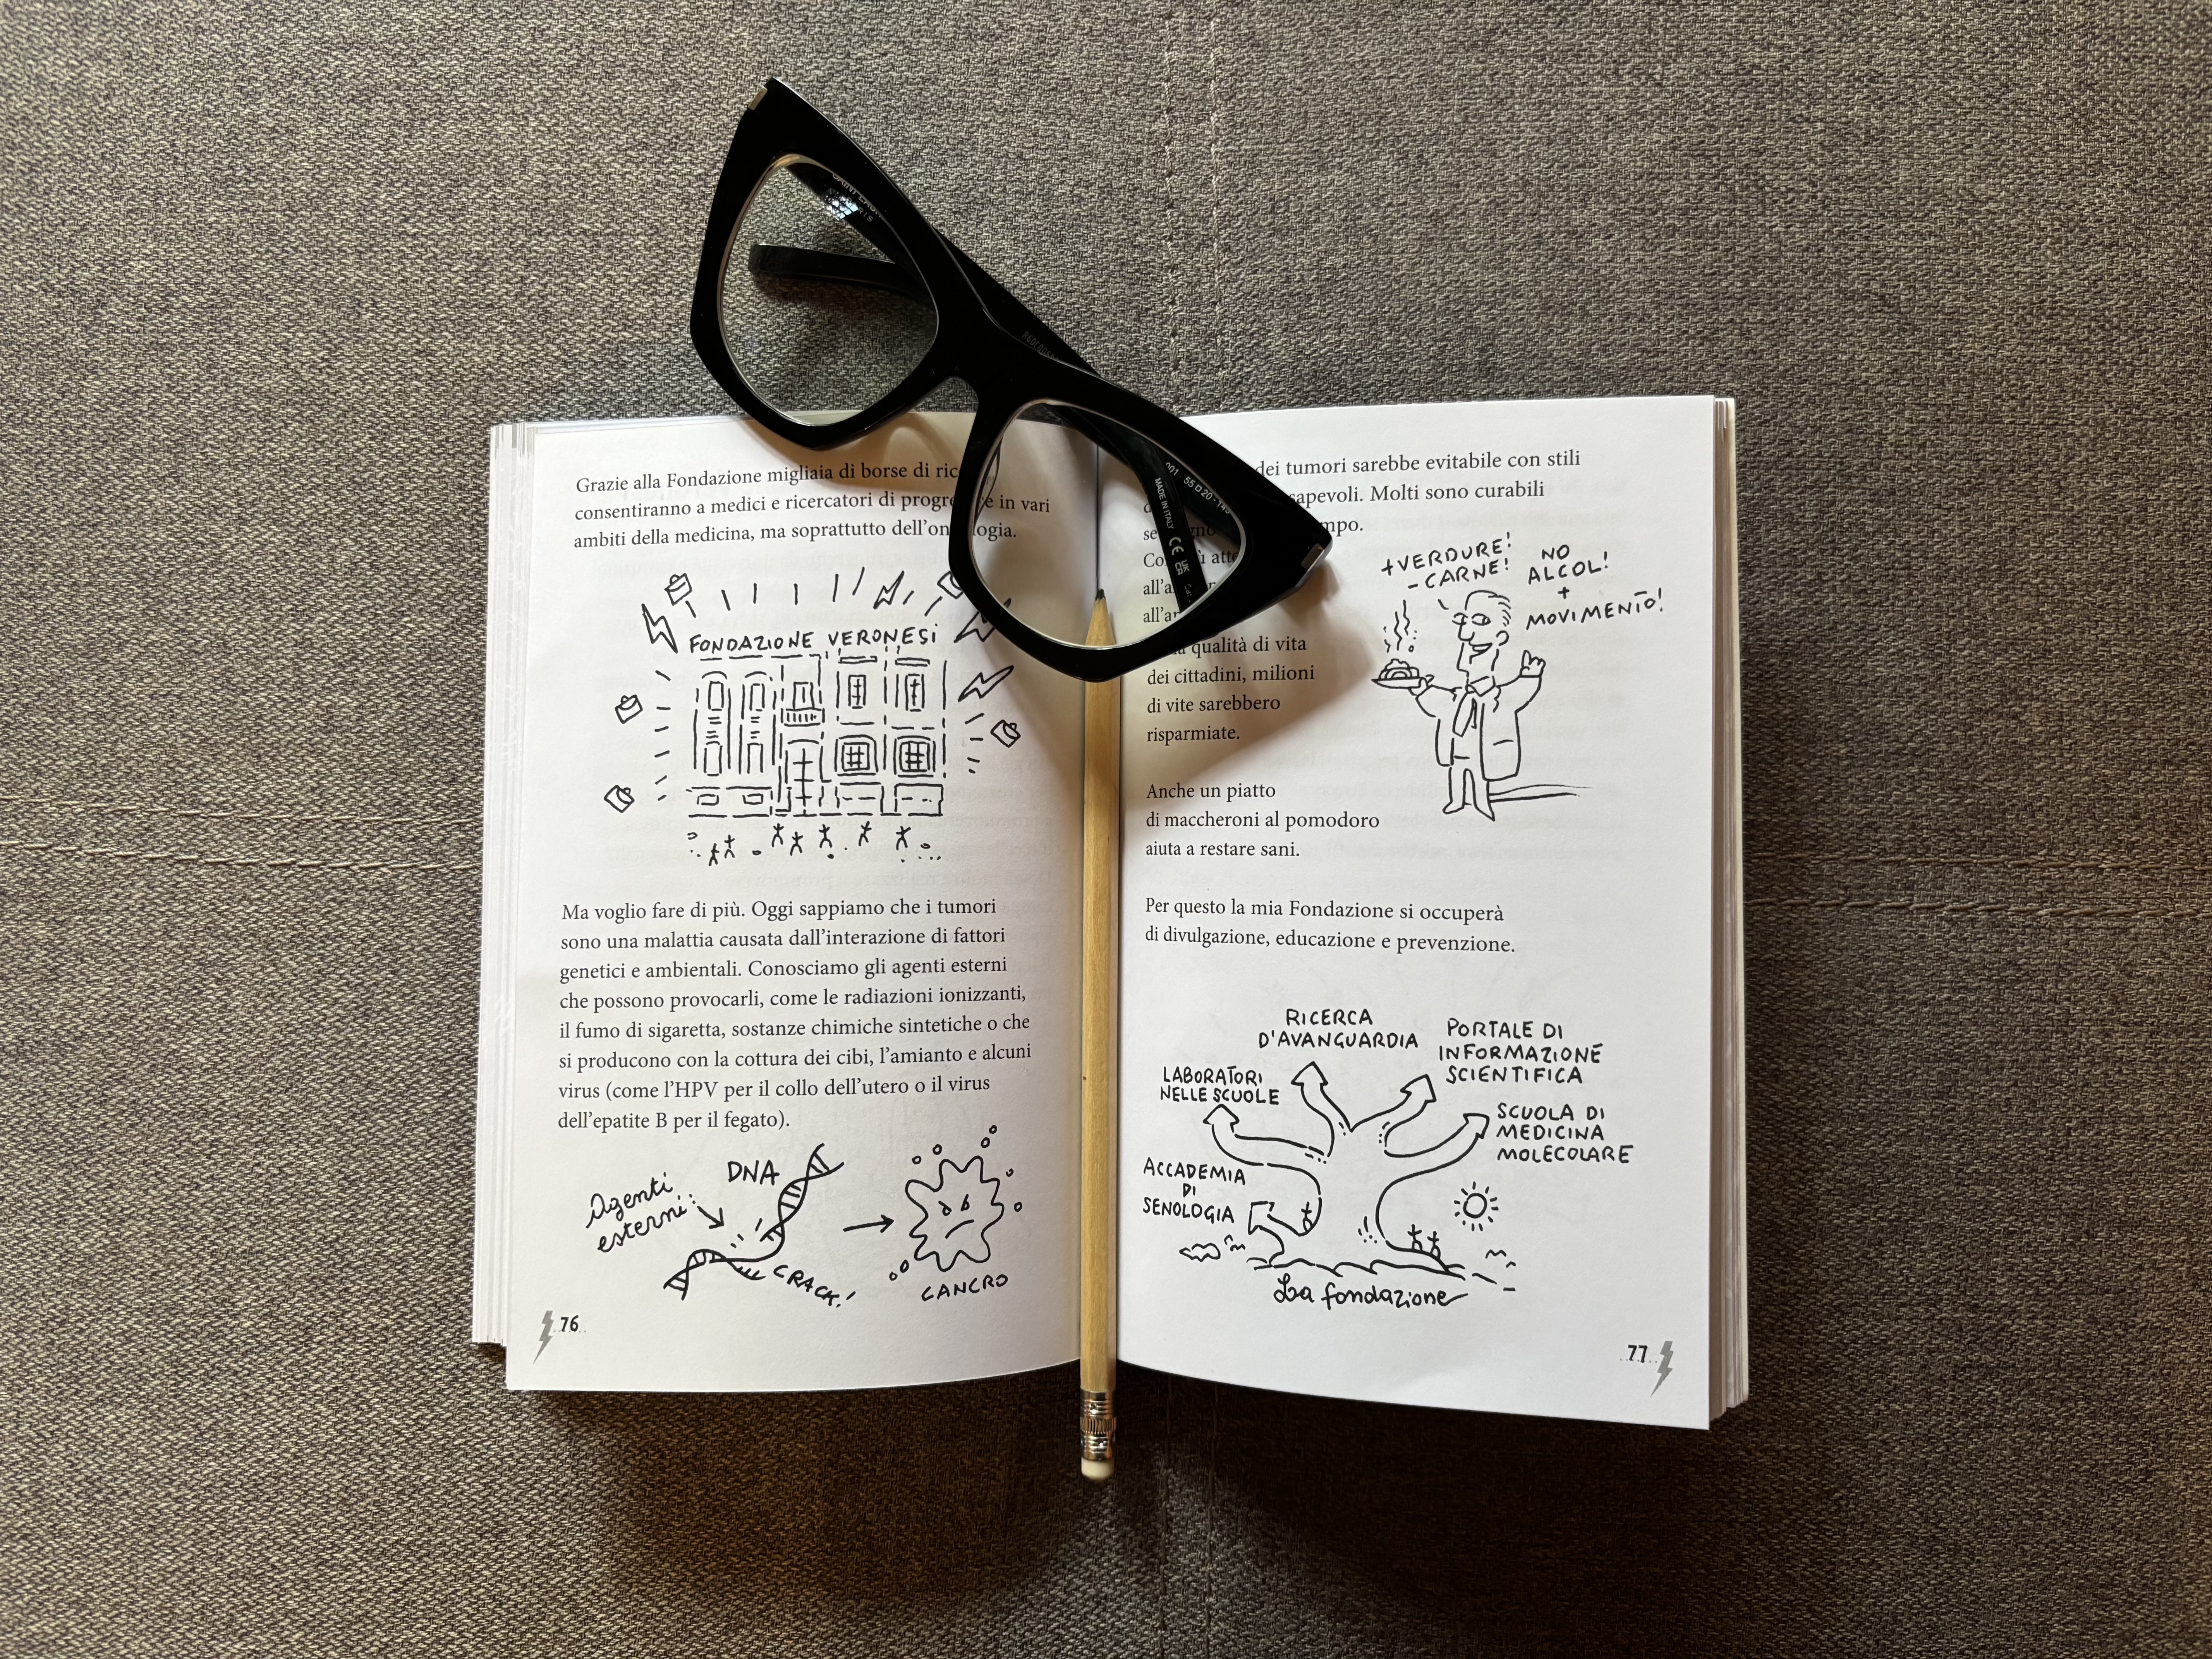 Grazie alla Fondazione migliaia di borse di
consentiranno a medici e ricercatori di in vari
ambiti della medicina, ma soprattutto
FONDAZIONE VERONESI
Ma voglio fare di più. Oggi sappiamo che i tumori
sono una malattia causata dall'interazione di fattori
genetici e ambientali. Conosciamo gli agenti esterni
che possono provocarli, come le radiazioni ionizzanti,
il fumo di sigaretta, sostanze chimiche sintetiche o che
si producono con la cottura dei cibi, l'amianto e alcuni
virus (come l'HPV per il collo dell'utero o il virus
dell'epatite B per il fegato).
Agenti
esterni
DNA
CRACK!
CANCRO
76
dei tumori sarebbe evitabile con stili
Molti sono curabili
qualità di vita
dei cittadini, milioni
di vite sarebbero
risparmiate.
+VERDURE!
-CARNE!
NO
ALCOL!
+
MOVIMENTO!
Anche un piatto
di maccheroni al pomodoro
aiuta a restare sani.
Per questo la mia Fondazione si occuperà
di divulgazione, educazione e prevenzione.
RICERCA
D'AVANGUARDIA
PORTALE DI
INFORMAZIONE
SCIENTIFICA
LABORATORI
NELLE SCUOLE
SCUOLA DI
MEDICINA
MOLECOLARE
ACCADEMIA
DI
SENOLOGIA
La fondazione
77
MADE IN ITALY CE UK CA
55 20-145